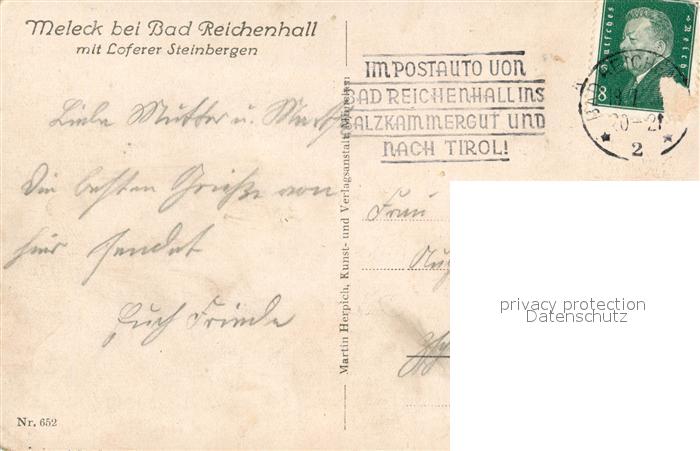 Meleck bei Bad Reichenhall
mit Loferer Steinbergen
IM POSTAUTO VON
BAD REICHENHALL INS
SALZKAMMERGUT UND
NACH TIROL!
Deutsches Reich
8
BAD REICHE
20-21
2
Liebe Mutter u.
Die besten Grüße von
hier sendet
Euch Frieda
Martin Herpich, Kunst- und Verlagsanstalt, München
Frau
privacy protection
Datenschutz
Nr. 652